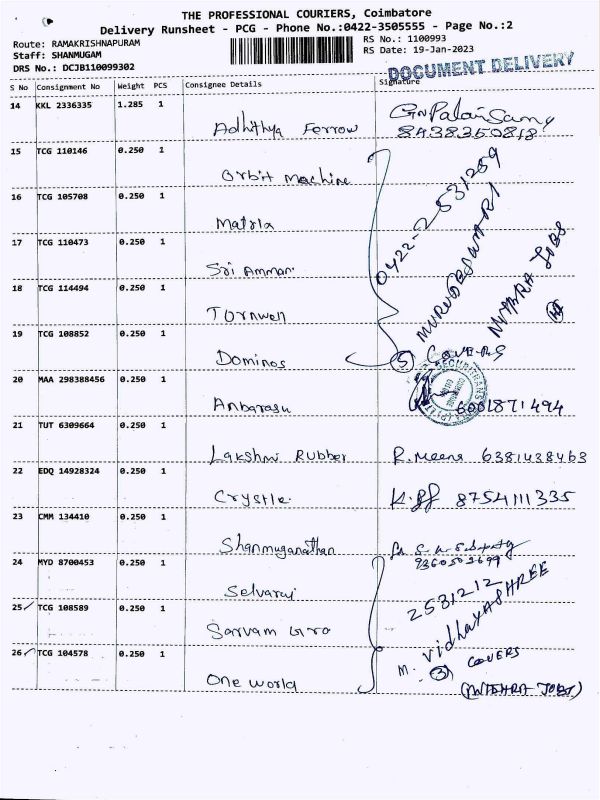 THE PROFESSIONAL COURIERS, Coimbatore
Delivery Runsheet - PCG - Phone No.:0422-3505555 - Page No.:2
Route: RAMAKRISHNAPURAM
Staff: SHANMUGAM
DRS No.: DCJB110099302
RS No.: 1100993
RS Date: 19-Jan-2023
DOCUMENT DELIVERY
S No Consignment No Weight PCS Consignee Details Signature
14 KKL 2336335 1.285 1
Adhithya Ferrow
8438350818
15 TCG 110146 0.250 1
Orbit Machine
0422-2531259
16 TCG 105708 0.250 1
Matrix
MURUGESWARI
17 TCG 110473 0.250 1
Sri Amman
18 TCG 114494 0.250 1
Tornwen
19 TCG 108852 0.250 1
Dominos
5 Covers
20 MAA 298388456 0.250 1
Anbarasu
6001871494
21 TUT 6309664 0.250 1
Lakshmi Rubber R. Meena 6381438463
22 EDQ 14928324 0.250 1
Crystle 8754111335
23 CMM 134410 0.250 1
Shanmuganathan
9360503699
24 MYD 8700453 0.250 1
Selvaraj
2581212
25 TCG 108589 0.250 1
Sarvam Giro
M. VidhayASHREE
26 TCG 104578 0.250 1
One world
3 COVERS